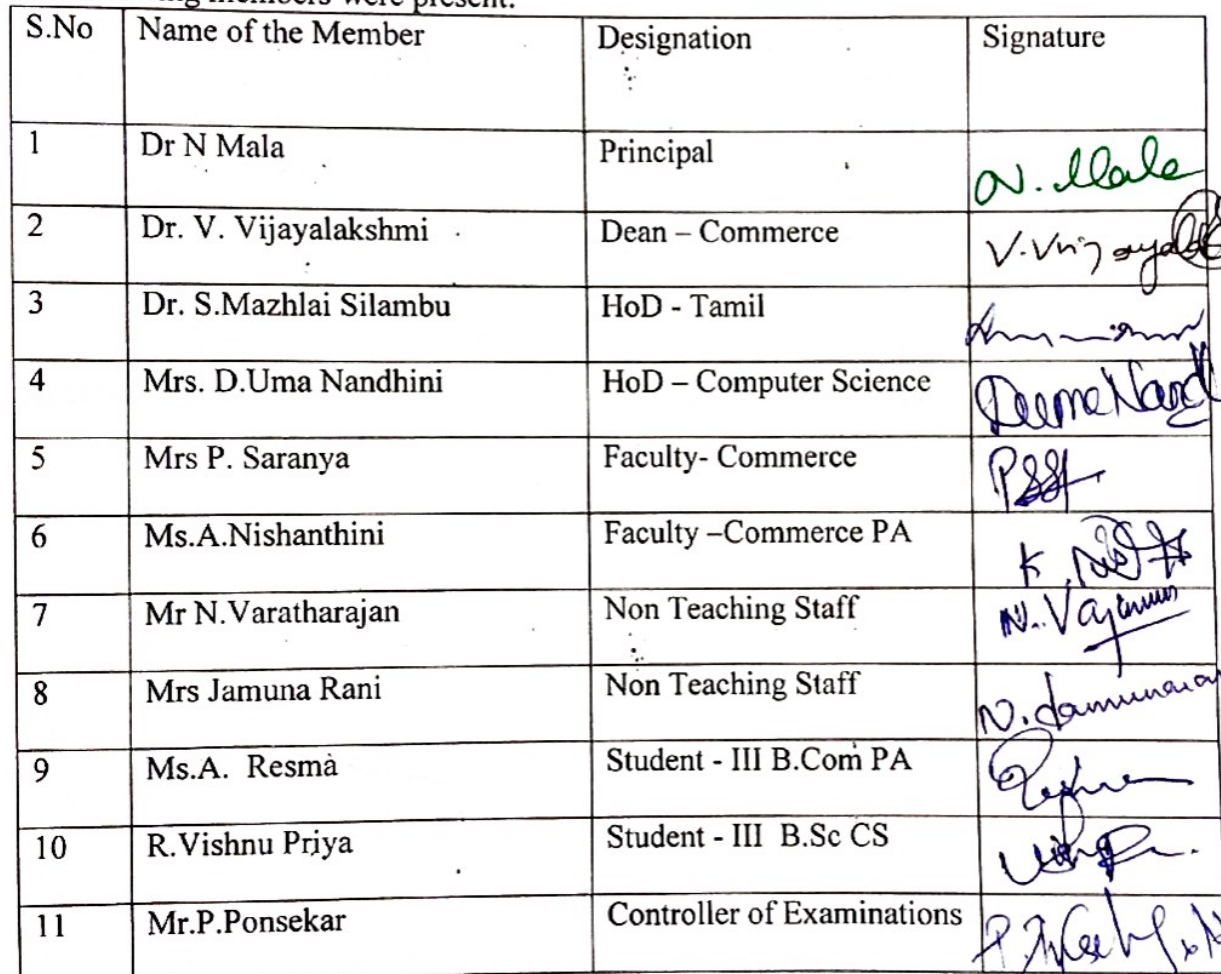 members were present.
S.No Name of the Member Designation Signature
1 Dr N Mala Principal N. Mala
2 Dr. V. Vijayalakshmi Dean – Commerce
3 Dr. S.Mazhlai Silambu HoD - Tamil
4 Mrs. D.Uma Nandhini HoD – Computer Science
5 Mrs P. Saranya Faculty- Commerce
6 Ms.A.Nishanthini Faculty –Commerce PA
7 Mr N.Varatharajan Non Teaching Staff
8 Mrs Jamuna Rani Non Teaching Staff
9 Ms.A. Resma Student - III B.Com PA
10 R.Vishnu Priya Student - III B.Sc CS
11 Mr.P.Ponsekar Controller of Examinations